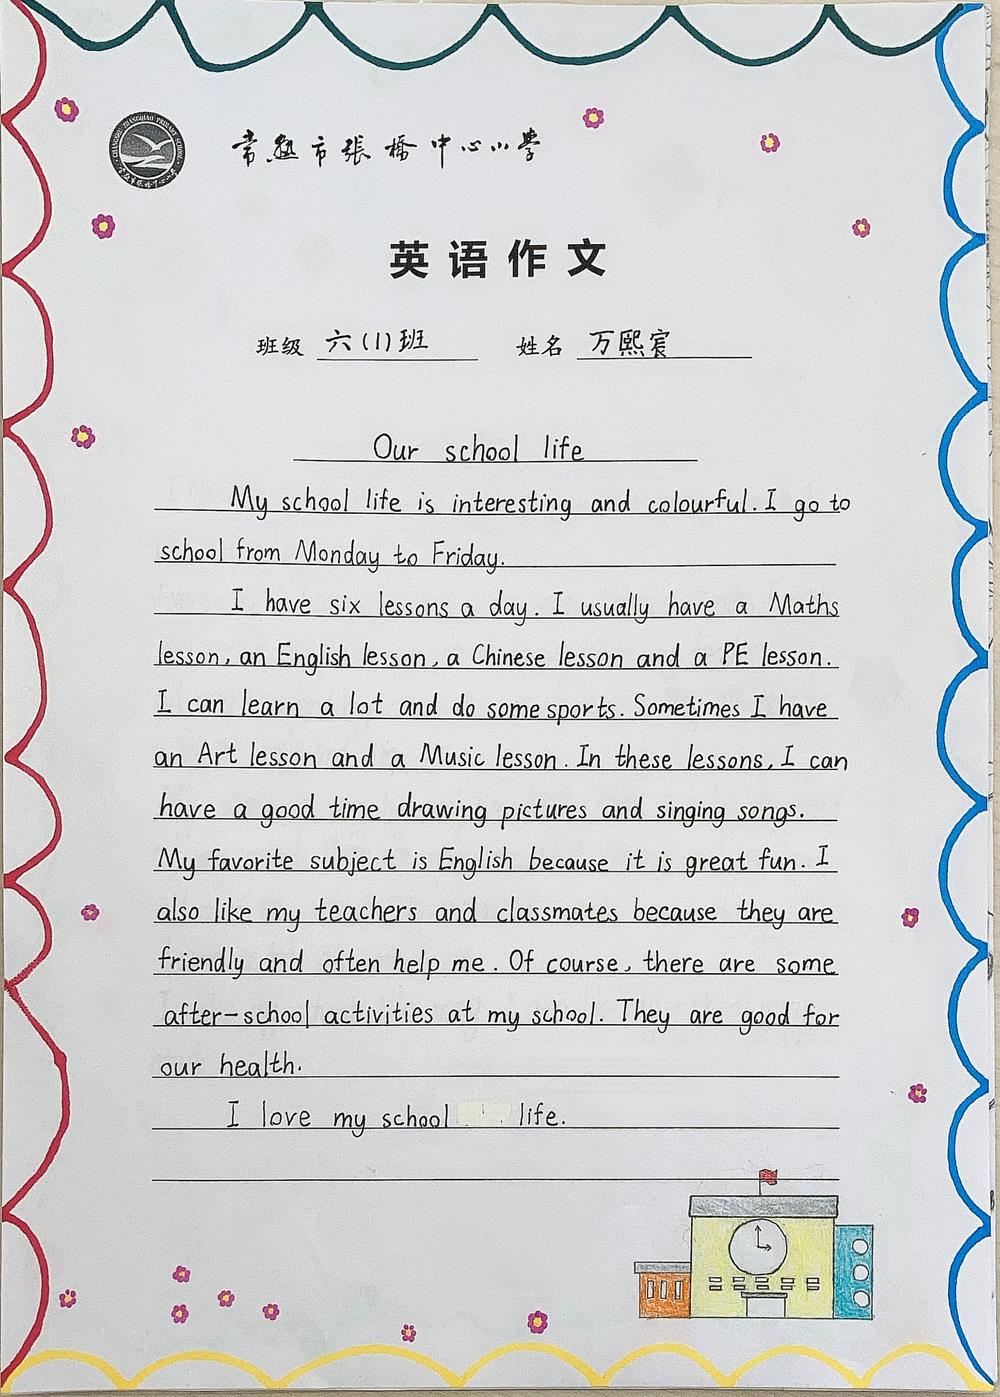 常熟市張橋中心小學
英语作文
班级 六(1)班 姓名 万熙宸
Our school life
My school life is interesting and colourful. I go to
school from Monday to Friday.
I have six lessons a day. I usually have a Maths
lesson, an English lesson, a Chinese lesson and a PE lesson.
I can learn a lot and do some sports. Sometimes I have
an Art lesson and a Music lesson. In these lessons, I can
have a good time drawing pictures and singing songs.
My favorite subject is English because it is great fun. I
also like my teachers and classmates because they are
friendly and often help me. Of course, there are some
after-school activities at my school. They are good for
our health.
I love my school life.